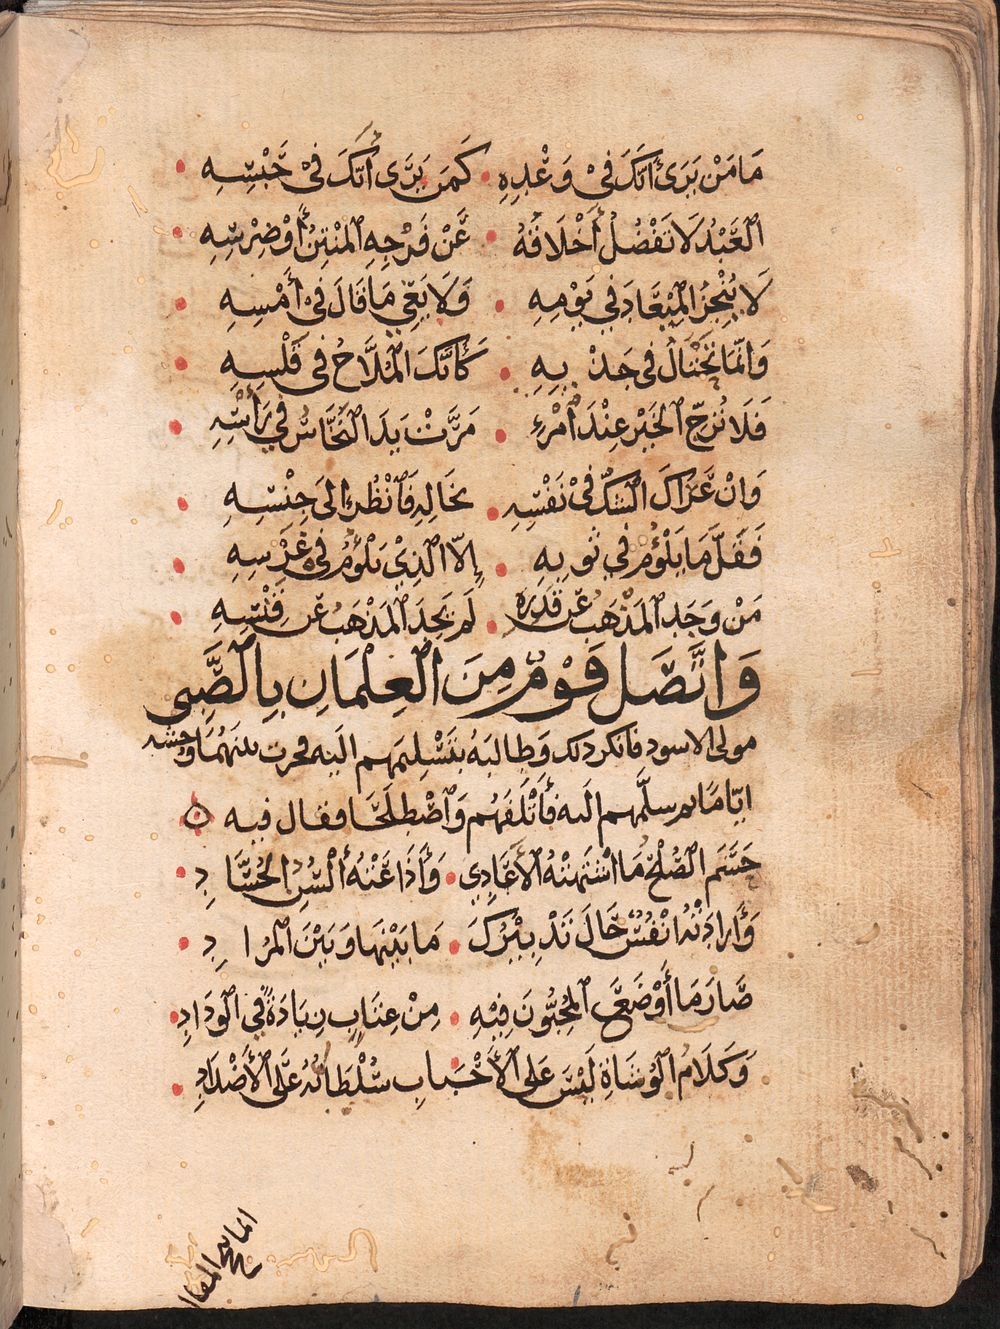 مَا مَنْ يَرَى أَنَّكَ فِيْ وَعْدِهِ • كَمَنْ يَرَى أَنَّكَ فِيْ حَبْسِهِ •
اَلْعَبْدُ لَا تَفْضُلُ أَخْلَاقُهُ • عَنْ فَرْجِهِ اَلْمُنْتِنِ أَوْ ضِرْسِهِ •
لَا يُنْجِزُ الْمِيْعَادَ فِي يَوْمِهِ • وَلَا يَعِي مَا قَالَ فِيْ أَمْسِهِ •
وَانَّمَا تَحْتَالُ فِي جَذْبِهِ • كَأَنَّكَ الْمَلَّاحُ فِي قَلْسِهِ •
فَلَا تُرَجِّ اَلْخَيْرَ عِنْدَ اَمْرِءٍ • مَرَّتْ يَدُ النَّخَّاسِ فِي رَأْسِهِ •
وَانْ عَرَاكَ الشَّكُّ فِيْ نَفْسِهِ • بحَالِهِ فَاَنْظُر الَى جِنْسِهِ •
فَقَلَّ مَا يَلْؤُمُ فِي ثوبِهِ • إِلَّا الَّذِيْ يَلْؤُمُ فِي غِرْسِهِ •
مَنْ وَجَدَ اَلْمَذْهَبَ عَنْ قَدْرِهِ • لَمْ يَجِدِ اَلْمَذْهَبَ عَنْ قِنْسِهِ •
وَاتَّصَلَ قَوْمٌ مِنَ اَلْغِلْمَانِ بِالصَّبِي
مولى الاسود فانكر ذلك وَطالبَهُ بتَسْلِيمهم اليه فجرت بينهُمَا وَحشه
ايّامًا ثم سلَّمهم اليه فَأَتْلَفَهُم وَاَصْطلَحَا فقال فيه ه
حَسَمَ الصُّلْحُ مَا اشْتَهَتْهُ اَلْأَعَادِي • وَأَذَاعَتْهُ أَلْسُنُ الْحُسَّادِ •
وَأَرَادَتْهُ أَنْفُسٌ حَالَ تَدْبِيْرُكَ • مَا بَيْنَهَا وَبَيْنَ اَلْمُرَادِ •
صَارَ مَا أَوْضَعَ اَلْمُخِبُّونَ فِيْهِ • مِنْ عِتَابٍ زِيَادَةً فِي اَلْوِدَادِ •
وَكَلَامُ اَلْوُشَاةِ لَيْسَ عَلَى اَلْأَحْبَابِ • سُلْطَانُهُ عَلَى اَلْأَضْدَادِ •
انما تنجح المقا